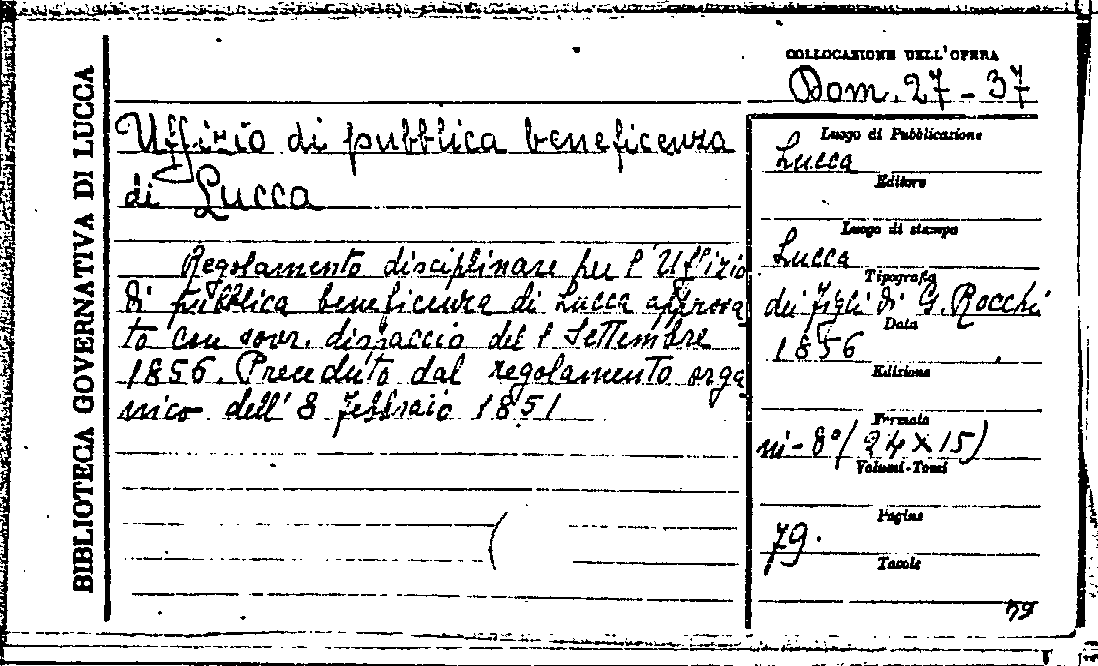 BIBLIOTECA GOVERNATIVA DI LUCCA
COLLOCAZIONE DELL'OPERA
Dom. 27-37
Uffizio di pubblica beneficenza
di Lucca
Regolamento disciplinare per l'Uffizio
di pubblica beneficenza di Lucca approva
to con sovr. dispaccio del 1 Settembre
1856. Preceduto dal regolamento orga
nico dell' 8 febbraio 1851
Luogo di Pubblicazione
Lucca
Editore
Luogo di stampa
Lucca
Tipografia
dei figli di G. Rocchi
Data
1856
Edizione
Formato
in-8° (24x15)
Volumi-Tomi
Pagine
79.
Tavole